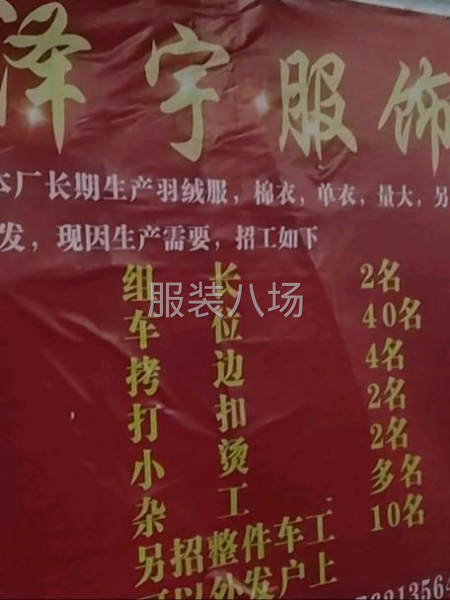 泽宇服饰
本厂长期生产羽绒服，棉衣，单衣，量大，另
发，现因生产需要，招工如下
组长 2名
服装八场
车位 40名
拷边 4名
打扣 2名
小烫 2名
杂工 多名
另招整件车工 10名
可以外发户上